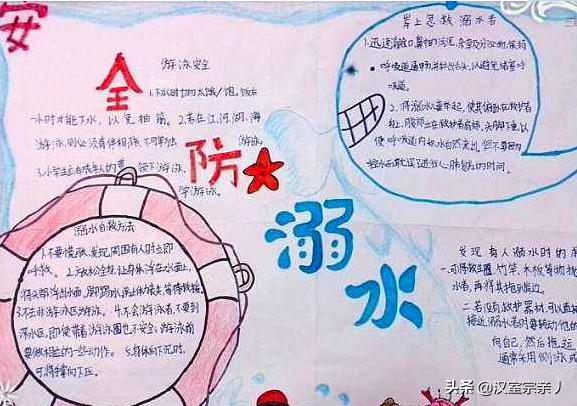 安
全
防
溺
水
游泳安全
1.下水时切勿太饿/饱。饭后
一小时才能下水,以免抽筋。2.若在江、河、湖、海
游泳,则必须有伴相陪,不可单独
游泳。
3.小学生应在成年人的带领下游泳、
学游泳。
岸上急救溺水者
1.迅速清除口、鼻中的污泥、杂草及分泌物,保持
呼吸道通畅,并拉出舌头,以避免堵塞呼
吸道。
2.将溺水儿童举起,使其俯卧在救护者
肩上,腹部紧贴救护者肩部,头脚下垂,以
便呼吸道内积水自然流出。但不要因为
控水而耽误了进行心肺复苏的时间。
溺水自救方法
1.不要慌张,发现周围有人时立即
呼救。2.放松全身,让身体浮在水面上,
将头部浮出水面,脚踢水,防止体力丧失,等待救援。
3.不去非游泳区游泳。4.不会游泳者,不要到
深水区,即使带着游泳圈也不安全。游泳前
要做相应的一些动作。5.身体向下沉时,
可将掌向下压。
发现有人溺水时的
一.可将救生圈、竹竿、木板等物抛
水者,再将其拖至岸边。
二.若没有救护器材,可以直接
接近溺水者时要转动他的
向自己,然后拖运
通常采用侧泳或
头条@汉室宗亲丿